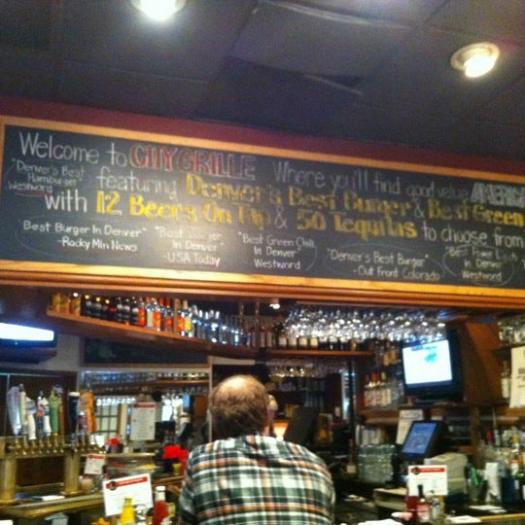 Welcome to CITY GRILLE Where you'll find good value AMERICA
"Denver's Best Hamburger" Westword
featuring Denver's Best Burger & Best Green
with 12 Beers On Tap & 50 Tequilas to choose from
Best Burger In Denver"
- Rocky Mtn News
"Best Burger
In Denver"
- USA Today
"Best Green Chili
In Denver
Westword
"Denver's Best Burger"
- Out Front Colorado
"Best Power Lunch
In Denver
Westword